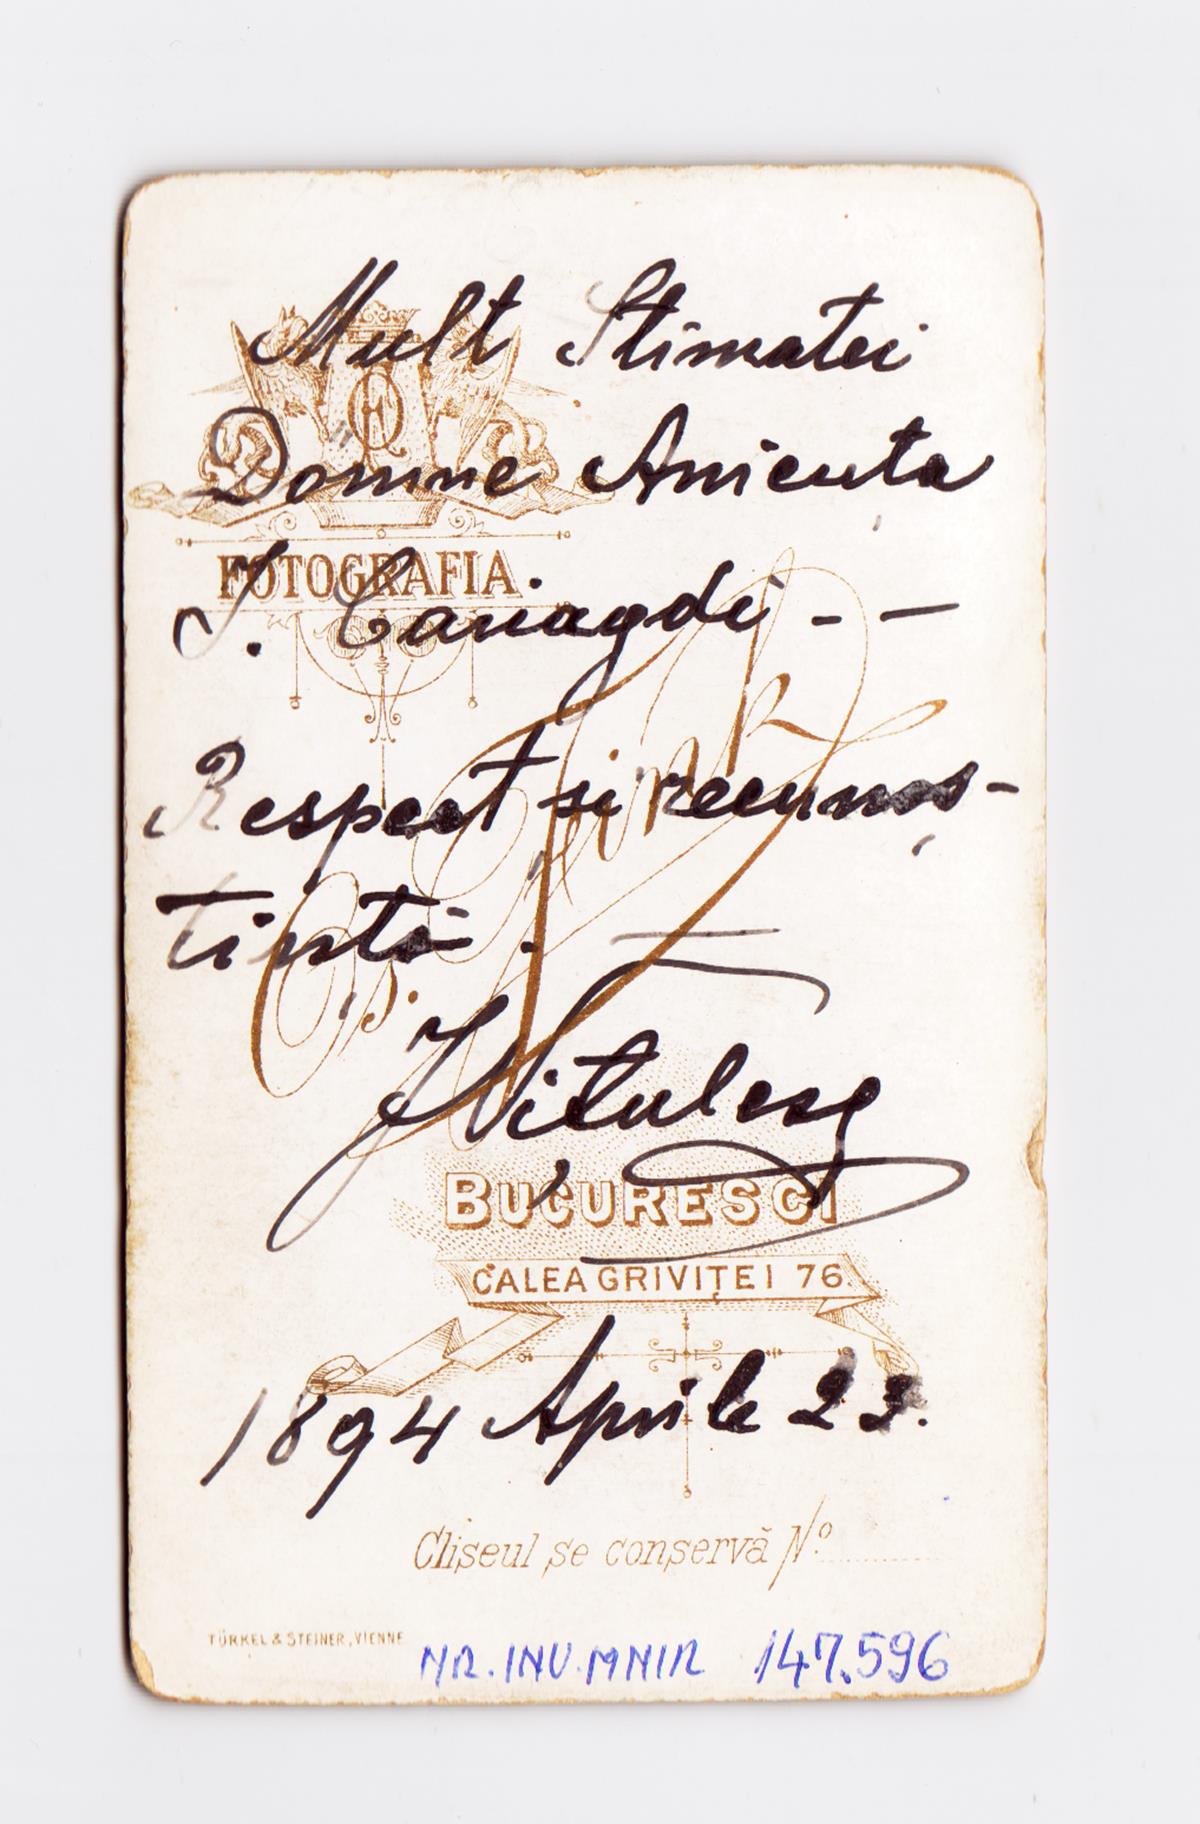 Mult Stimatei
Domne Anicuța
FOTOGRAFIA
I. Canagdi - -
Respect si recunoș-
tință.
Vitulesc
BUCURESCI
CALEA GRIVIȚEI 76.
1894 Aprile 23.
Clișeul se conservă Nº
TÜRKEL & STEINER, VIENNE
NR. INV. MNIR 147.596